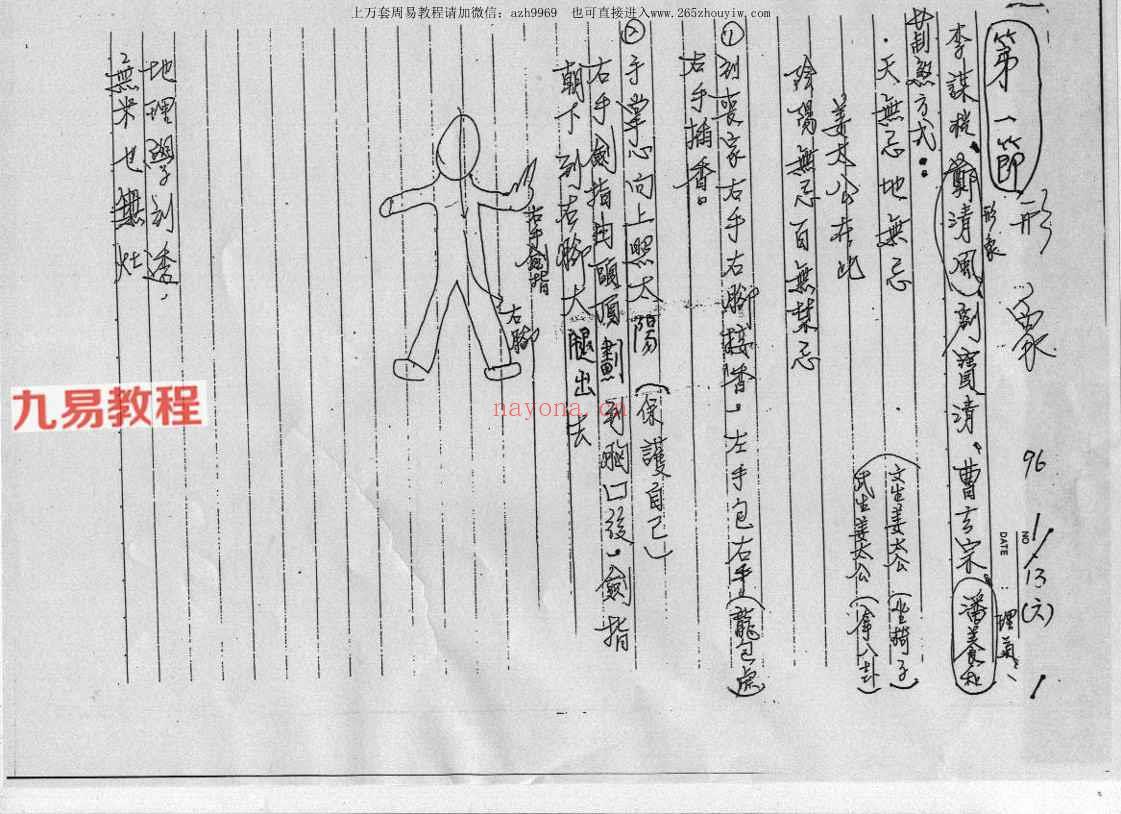 上万套周易教程请加微信：azh9969 也可直接进入www.265zhouyiw.com
第一節 形象 96 1/13(六) 1
NO
DATE
李謀 鄭清風 劉寶清。曹吉宗。潘美食
形象 理氣
制煞方式：
·天無忌地無忌
姜太公在此
陰陽無忌百無禁忌
文生姜太公(坐椅子)
武生姜太公(拿八卦)
①到喪家右手右腳接香，左手包右手(龍包虎)
右手插香。
②手掌心向上照太陽(保護自己)
右手劍指由頭頂劃到胸口後，劍指
朝下到右腳大腿出去
右手劍指
右腳
地理學到透，
無米也無灶
九易教程
nayona.cn